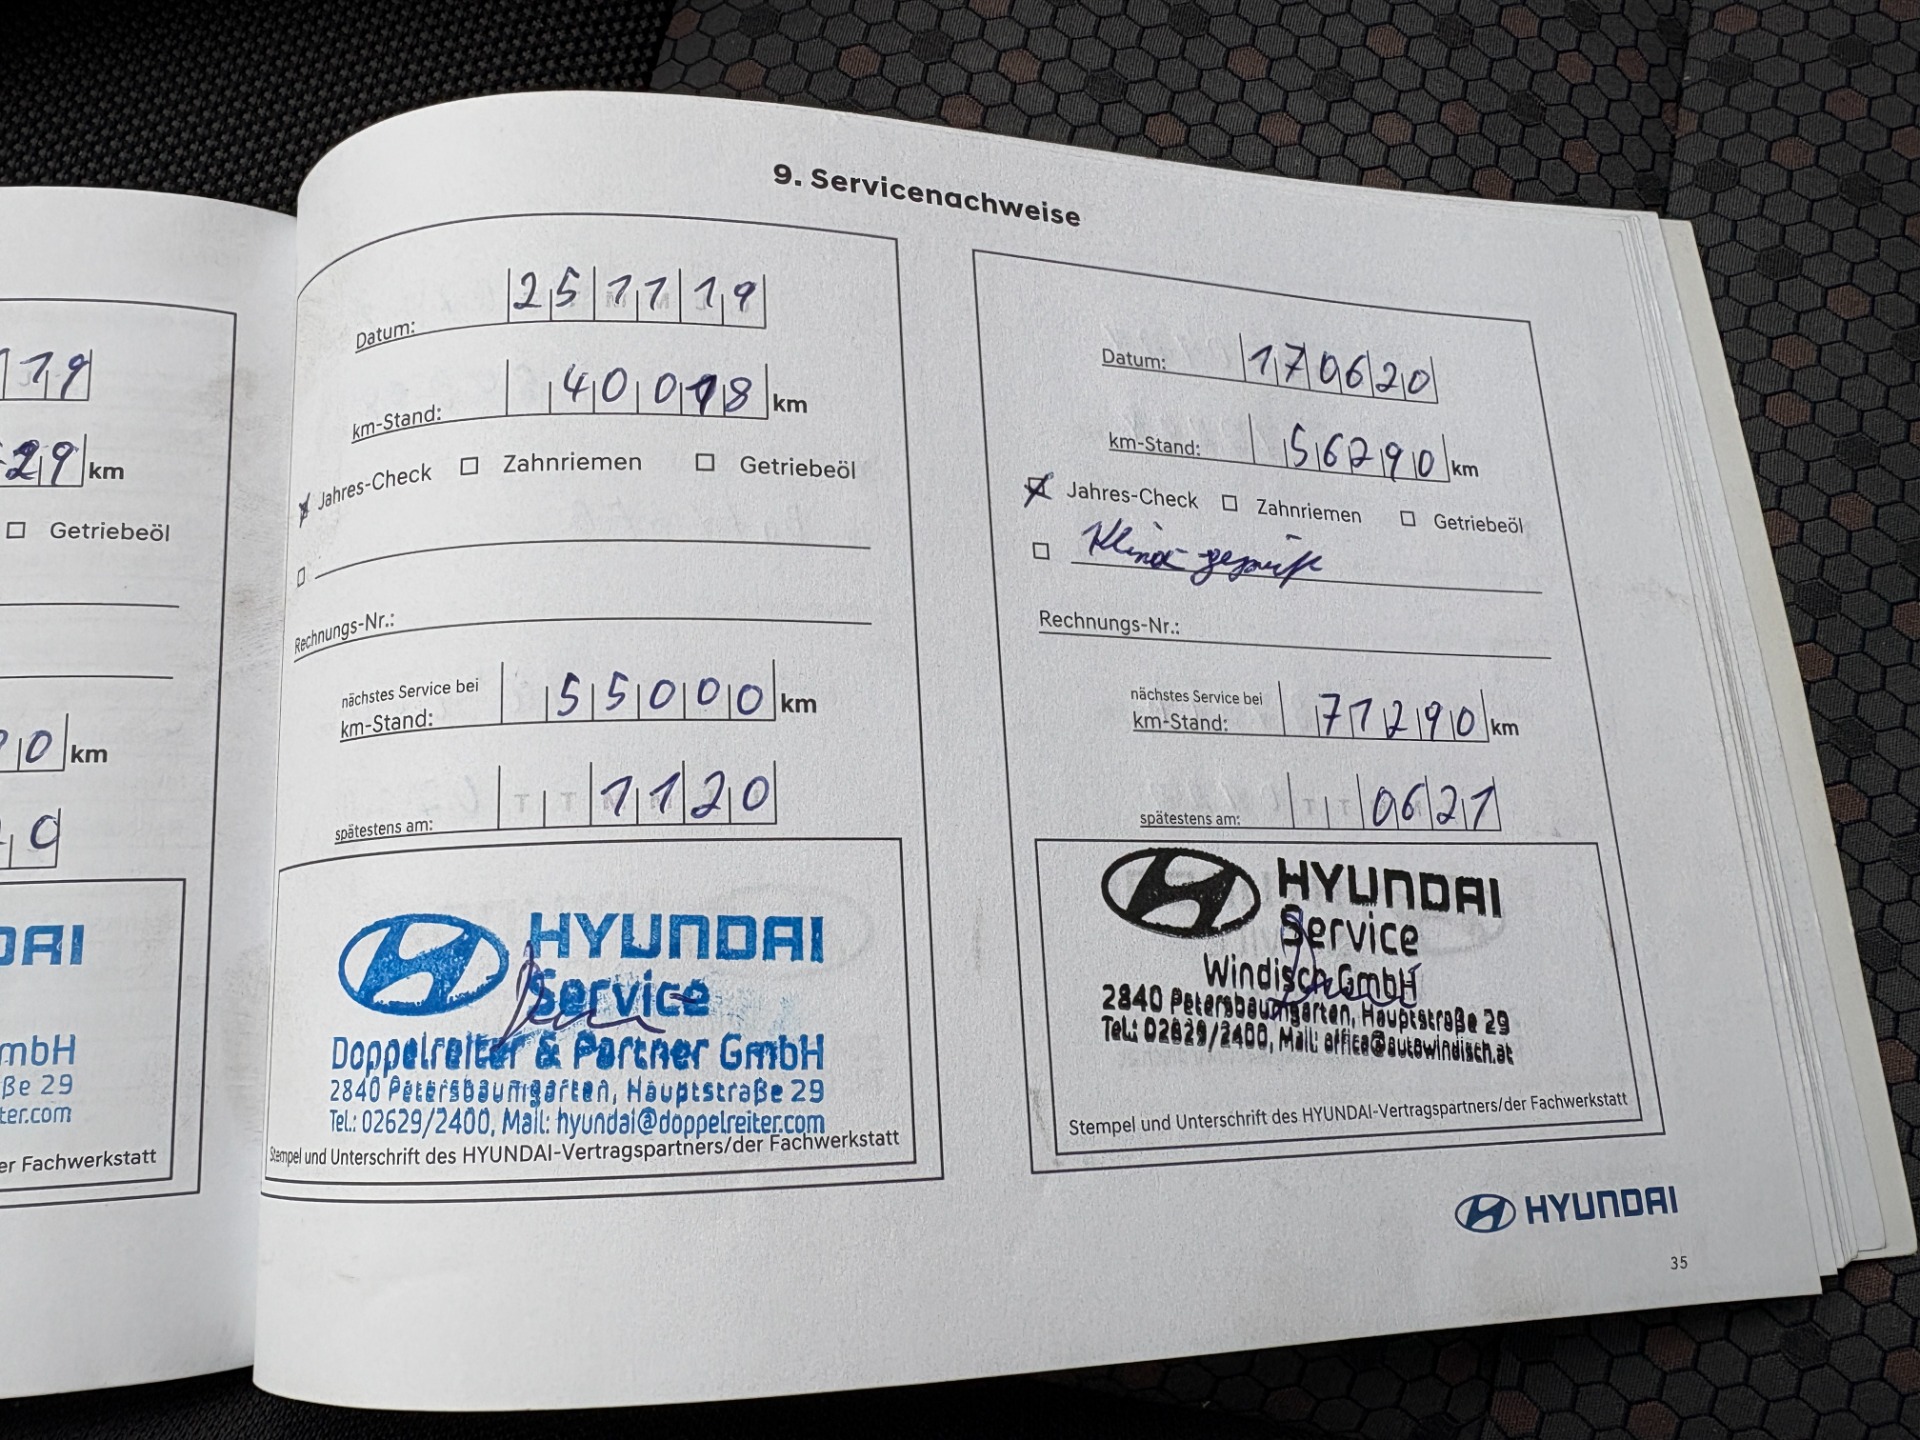 9. Servicenachweise
19
29 km
Getriebeöl
0 km
0
DAI
mbH
ße 29
ter.com
er Fachwerkstatt
Datum: 25 11 19
km-Stand: 40 018 km
Jahres-Check Zahnriemen Getriebeöl
Rechnungs-Nr.:
nächstes Service bei
km-Stand: 55000 km
spätestens am: 11 20
HYUNDAI
Service
Doppelreiter & Partner GmbH
2840 Petersbaumgarten, Hauptstraße 29
Tel.: 02629/2400, Mail: hyundai@doppelreiter.com
Stempel und Unterschrift des HYUNDAI-Vertragspartners/der Fachwerkstatt
Datum: 17 06 20
km-Stand: 56290 km
Jahres-Check Zahnriemen Getriebeöl
Klima geprüft
Rechnungs-Nr.:
nächstes Service bei
km-Stand: 71290 km
spätestens am: 06 21
HYUNDAI
Service
Windisch GmbH
2840 Petersbaumgarten, Hauptstraße 29
Tel.: 02629/2400, Mail: office@autowindisch.at
Stempel und Unterschrift des HYUNDAI-Vertragspartners/der Fachwerkstatt
HYUNDAI
35